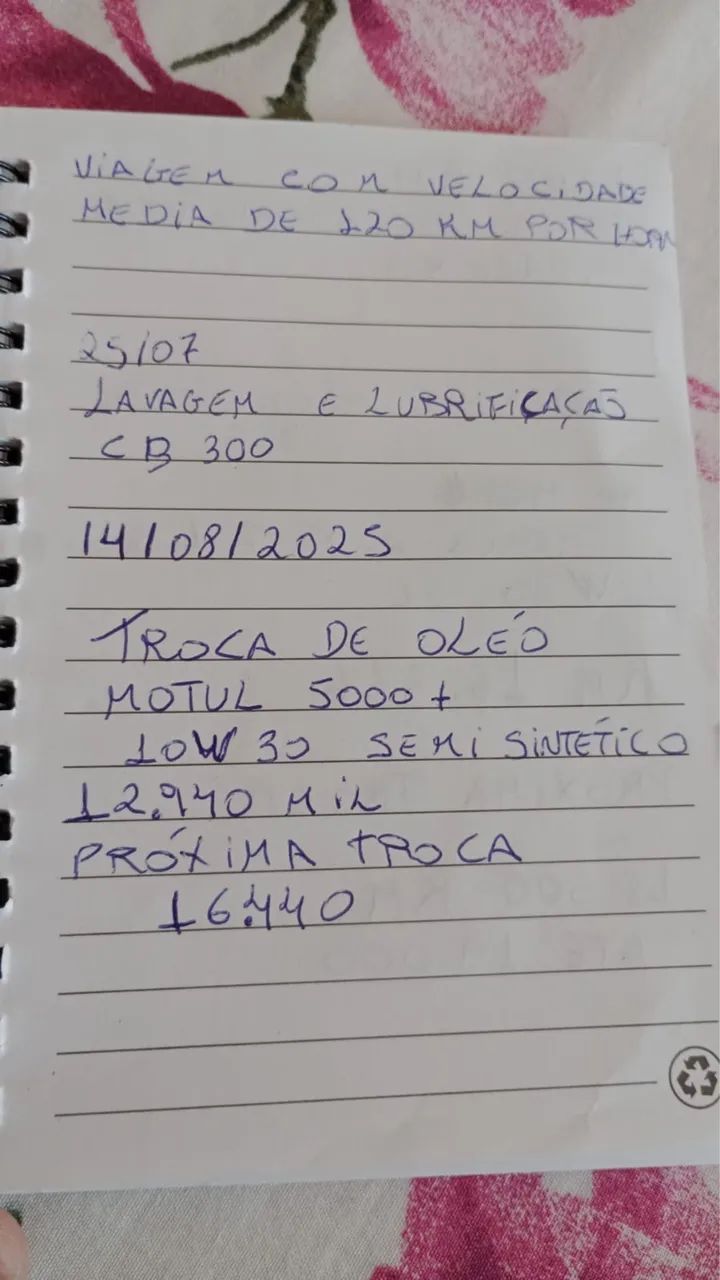 VIAGEM COM VELOCIDADE
MEDIA DE 120 KM POR HORA
25/07
LAVAGEM E LUBRIFICAÇAÕ
CB 300
14/08/2025
TROCA DE OLEÓ
MOTUL 5000 +
10W30 SEMI SINTETÍCO
12.940 MIL
PRÓXIMA TROCA
16.440